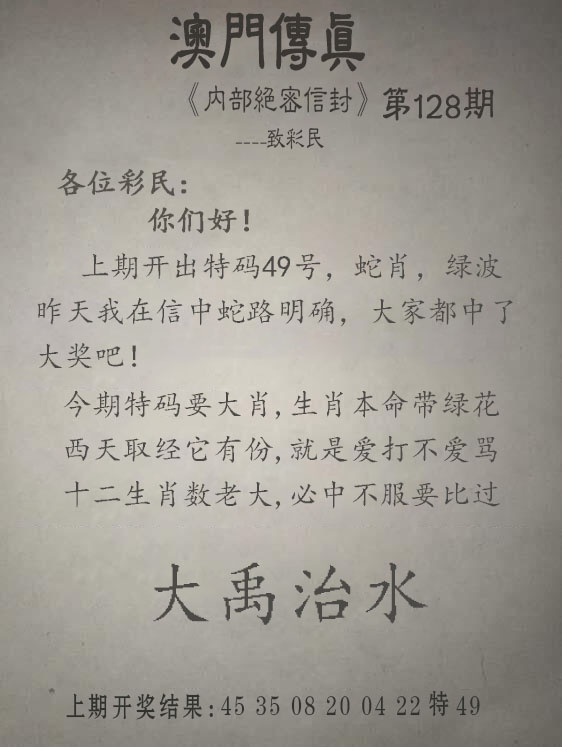 澳門傳眞
《内部絕密信封》第128期
----致彩民
各位彩民：
你们好！
上期开出特码49号，蛇肖，绿波
昨天我在信中蛇路明确，大家都中了
大奖吧！
今期特码要大肖,生肖本命带绿花
西天取经它有份,就是爱打不爱骂
十二生肖数老大,必中不服要比过
大禹治水
上期开奖结果:45 35 08 20 04 22 特 49